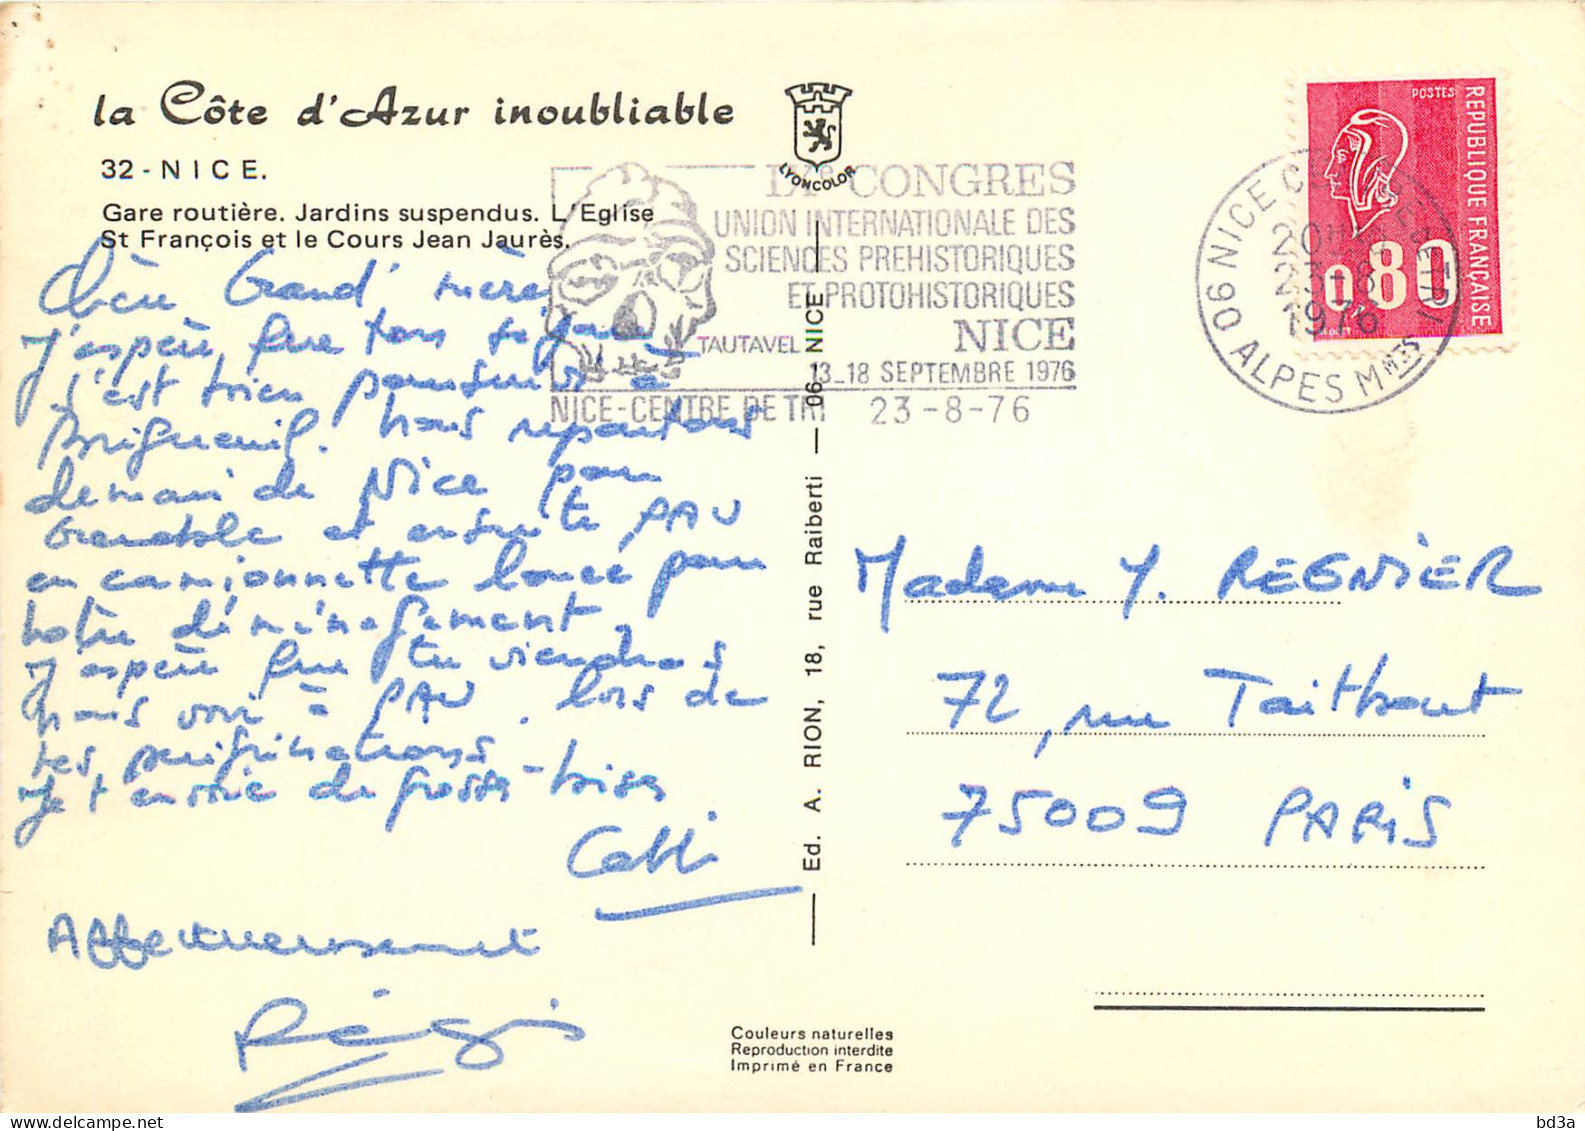 la Côte d'Azur inoubliable
32 - NICE.
Gare routière. Jardins suspendus. L'Eglise
St François et le Cours Jean Jaurès.
LYONCOLOR
IXe CONGRES
UNION INTERNATIONALE DES
SCIENCES PREHISTORIQUES
ET PROTOHISTORIQUES
TAUTAVEL NICE
13_18 SEPTEMBRE 1976
NICE-CENTRE DE TRI 23-8-76
POSTES
REPUBLIQUE FRANÇAISE
0,80
06 NICE CENTRE DE TRI
20H
23-8
1976
ALPES MMES
Chère Grand'mère
J'espère que ton séjour
s'est bien poursuivi à
Brigueuil. Nous repartons
demain de Nice pour
Grenoble et ensuite PAU
en camionnette louée pour
notre déménagement.
J'espère que tu viendras
nous voir à PAU, lors de
tes pérégrinations
Je t'envoie de grosses bises
Affectueusement
Régis
Madame Y. REGNIER
72, rue Taitbout
75009 PARIS
Ed. A. RION, 18, rue Raiberti — 06-NICE
Couleurs naturelles
Reproduction interdite
Imprimé en France
bd3a